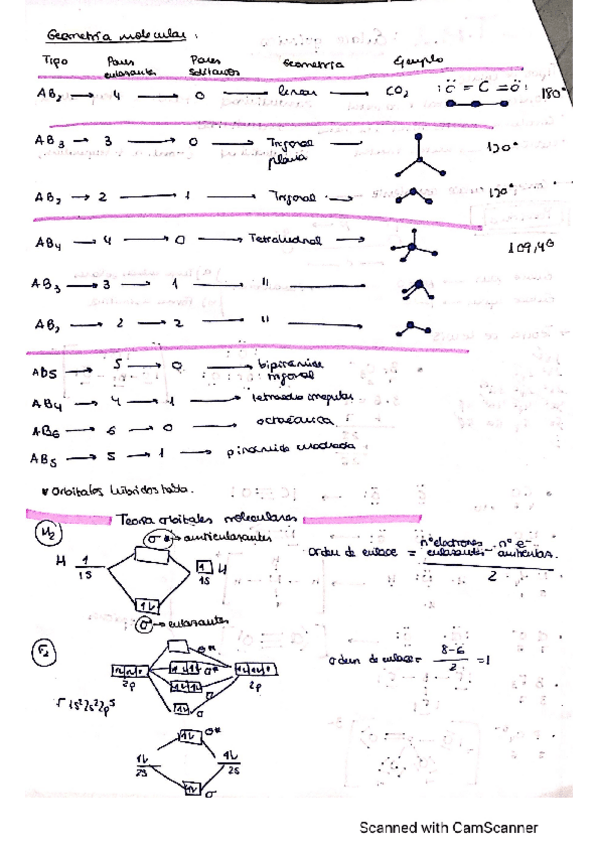 Geometría molecular:
Tipo Pares enlazantes Pares solitarios Geometría Ejemplo
AB₂ → 4 → 0 → lineal → CO₂ :Ö = C = Ö: 180°
AB₃ → 3 → 0 → Trigonal plana → 120°
AB₂ → 2 → 1 → Trigonal → 120°
AB₄ → 4 → 0 → Tetrahedral → 109,4°
AB₃ → 3 → 1 → "
AB₂ → 2 → 2 → " →
AB5 → 5 → 0 → bipirámide trigonal
AB₄ → 4 → 1 → tetraedro irregular.
AB₆ → 6 → 0 → octaédrica.
AB₅ → 5 → 1 → pirámide cuadrada
Orbitales híbridos hasta.
Teoría orbitales moleculares
H₂
σ* → antienlazantes
H 1 1S
1 H 1S
1L
σ → enlazantes
orden de enlace = nº electrones enlazantes - nº e⁻ antienlazs. / 2
F₂
σ*
σ*
2p 2p
σ
F 1s²2s²2p⁵
orden de enlace = 8-6 / 2 = 1
σ*
1L 2S
1L 2S
1L σ
Scanned with CamScanner